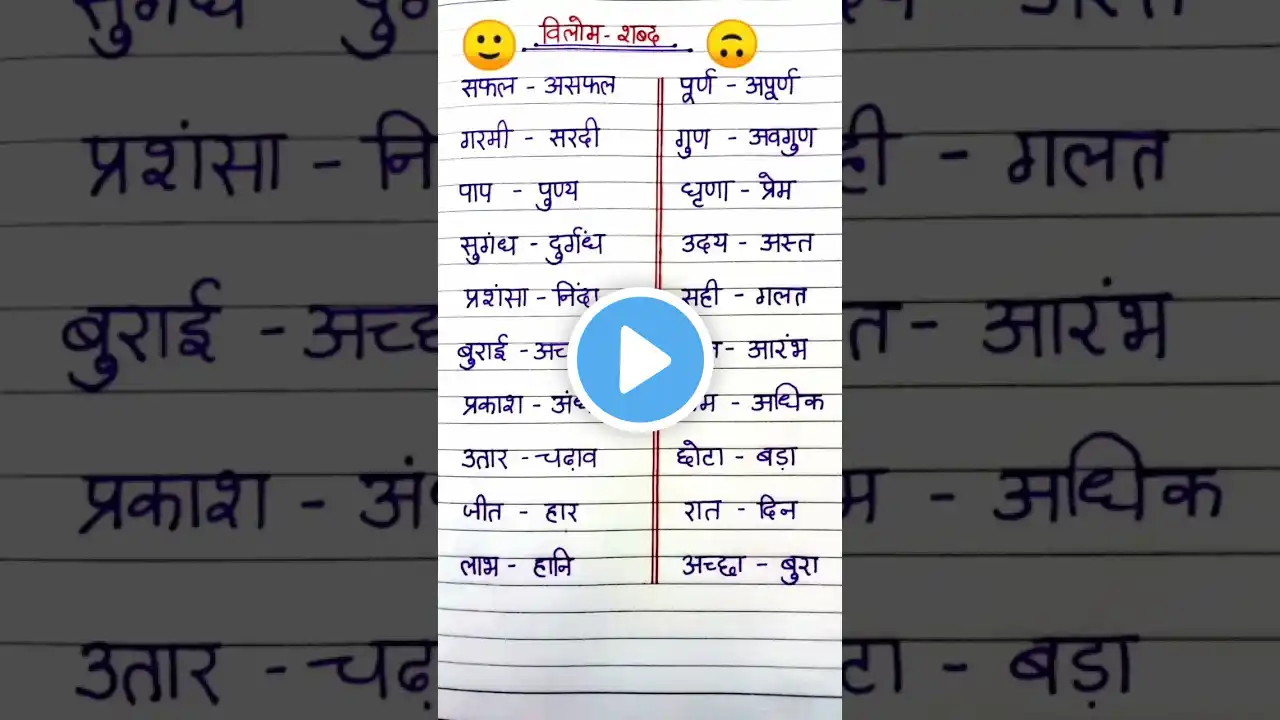 विलोम-शब्द
सफल - असफल
गरमी - सरदी
पाप - पुण्य
सुगंध - दुर्गंध
प्रशंसा - निंदा
बुराई -
प्रकाश -
उतार - चढ़ाव
जीत - हार
लाभ - हानि
पूर्ण - अपूर्ण
गुण - अवगुण
घृणा - प्रेम
उदय - अस्त
सही - गलत
- आरंभ
- अधिक
छोटा - बड़ा
रात - दिन
अच्छा - बुरा